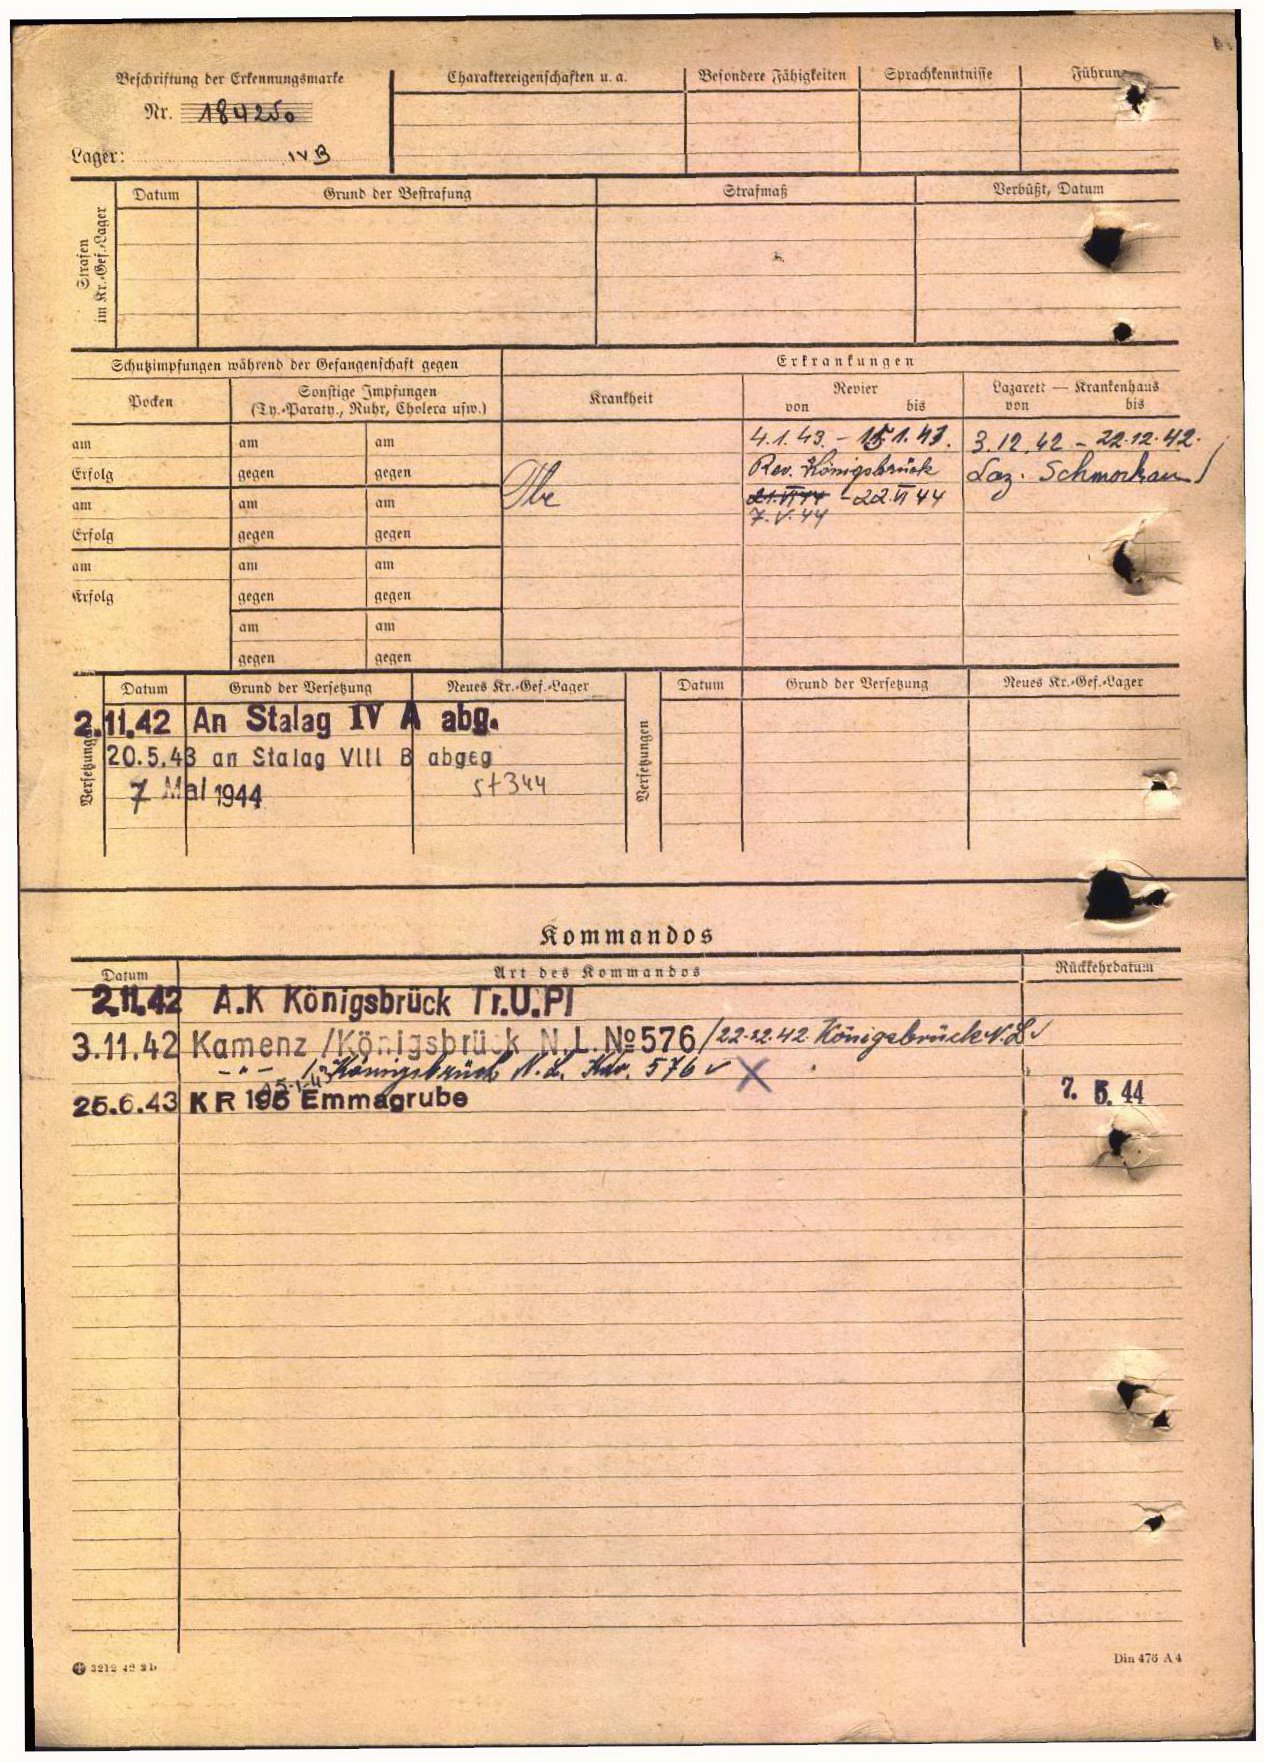 Beschriftung der Erkennungsmarke
Nr. 184250
Lager: IV B
Charaktereigenschaften u. a.
Besondere Fähigkeiten
Sprachkenntnisse
Führung
Strafen im Kr.-Gef.-Lager
Datum
Grund der Bestrafung
Strafmaß
Verbüßt, Datum
Schutzimpfungen während der Gefangenschaft gegen
Erkrankungen
Pocken
Sonstige Impfungen
(Ty.-Paraty., Ruhr, Cholera usw.)
Krankheit
Revier
von bis
Lazarett — Krankenhaus
von bis
am am am
4.1.43. - 15.1.43. 3.12.42 - 22.12.42.
Erfolg gegen gegen
Rev. Königsbrück Laz. Schmorkau
am am am
21.VI 44 - 22.VI 44
7.V.44
Erfolg gegen gegen
am am am
Erfolg gegen gegen
am am
gegen gegen
Versetzungen
Datum Grund der Versetzung Neues Kr.-Gef.-Lager
Versetzungen
Datum Grund der Versetzung Neues Kr.-Gef.-Lager
2.11.42 An Stalag IV A abg.
20.5.43 an Stalag VIII B abgeg
7 Mai 1944 St 344
Kommandos
Datum Art des Kommandos Rückkehrdatum
2.11.42 A.K Königsbrück Tr.U.Pl
3.11.42 Kamenz /Königsbrück N.L. No 576 / 22.12.42 Königsbrück N.L
- " - / Königsbrück N.L. 576
15-1-43
25.6.43 KR 195 Emmagrube 7. 5. 44
3212 42 2b
Din 476 A4